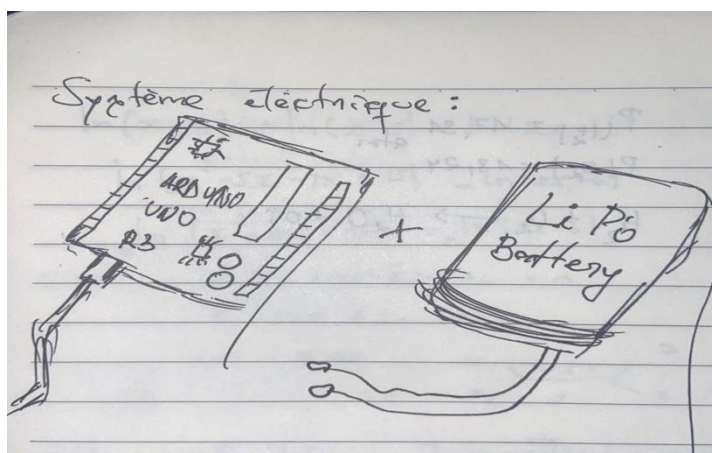 Système électrique :
ARDUINO
UNO
R3
+
Li Po
Battery